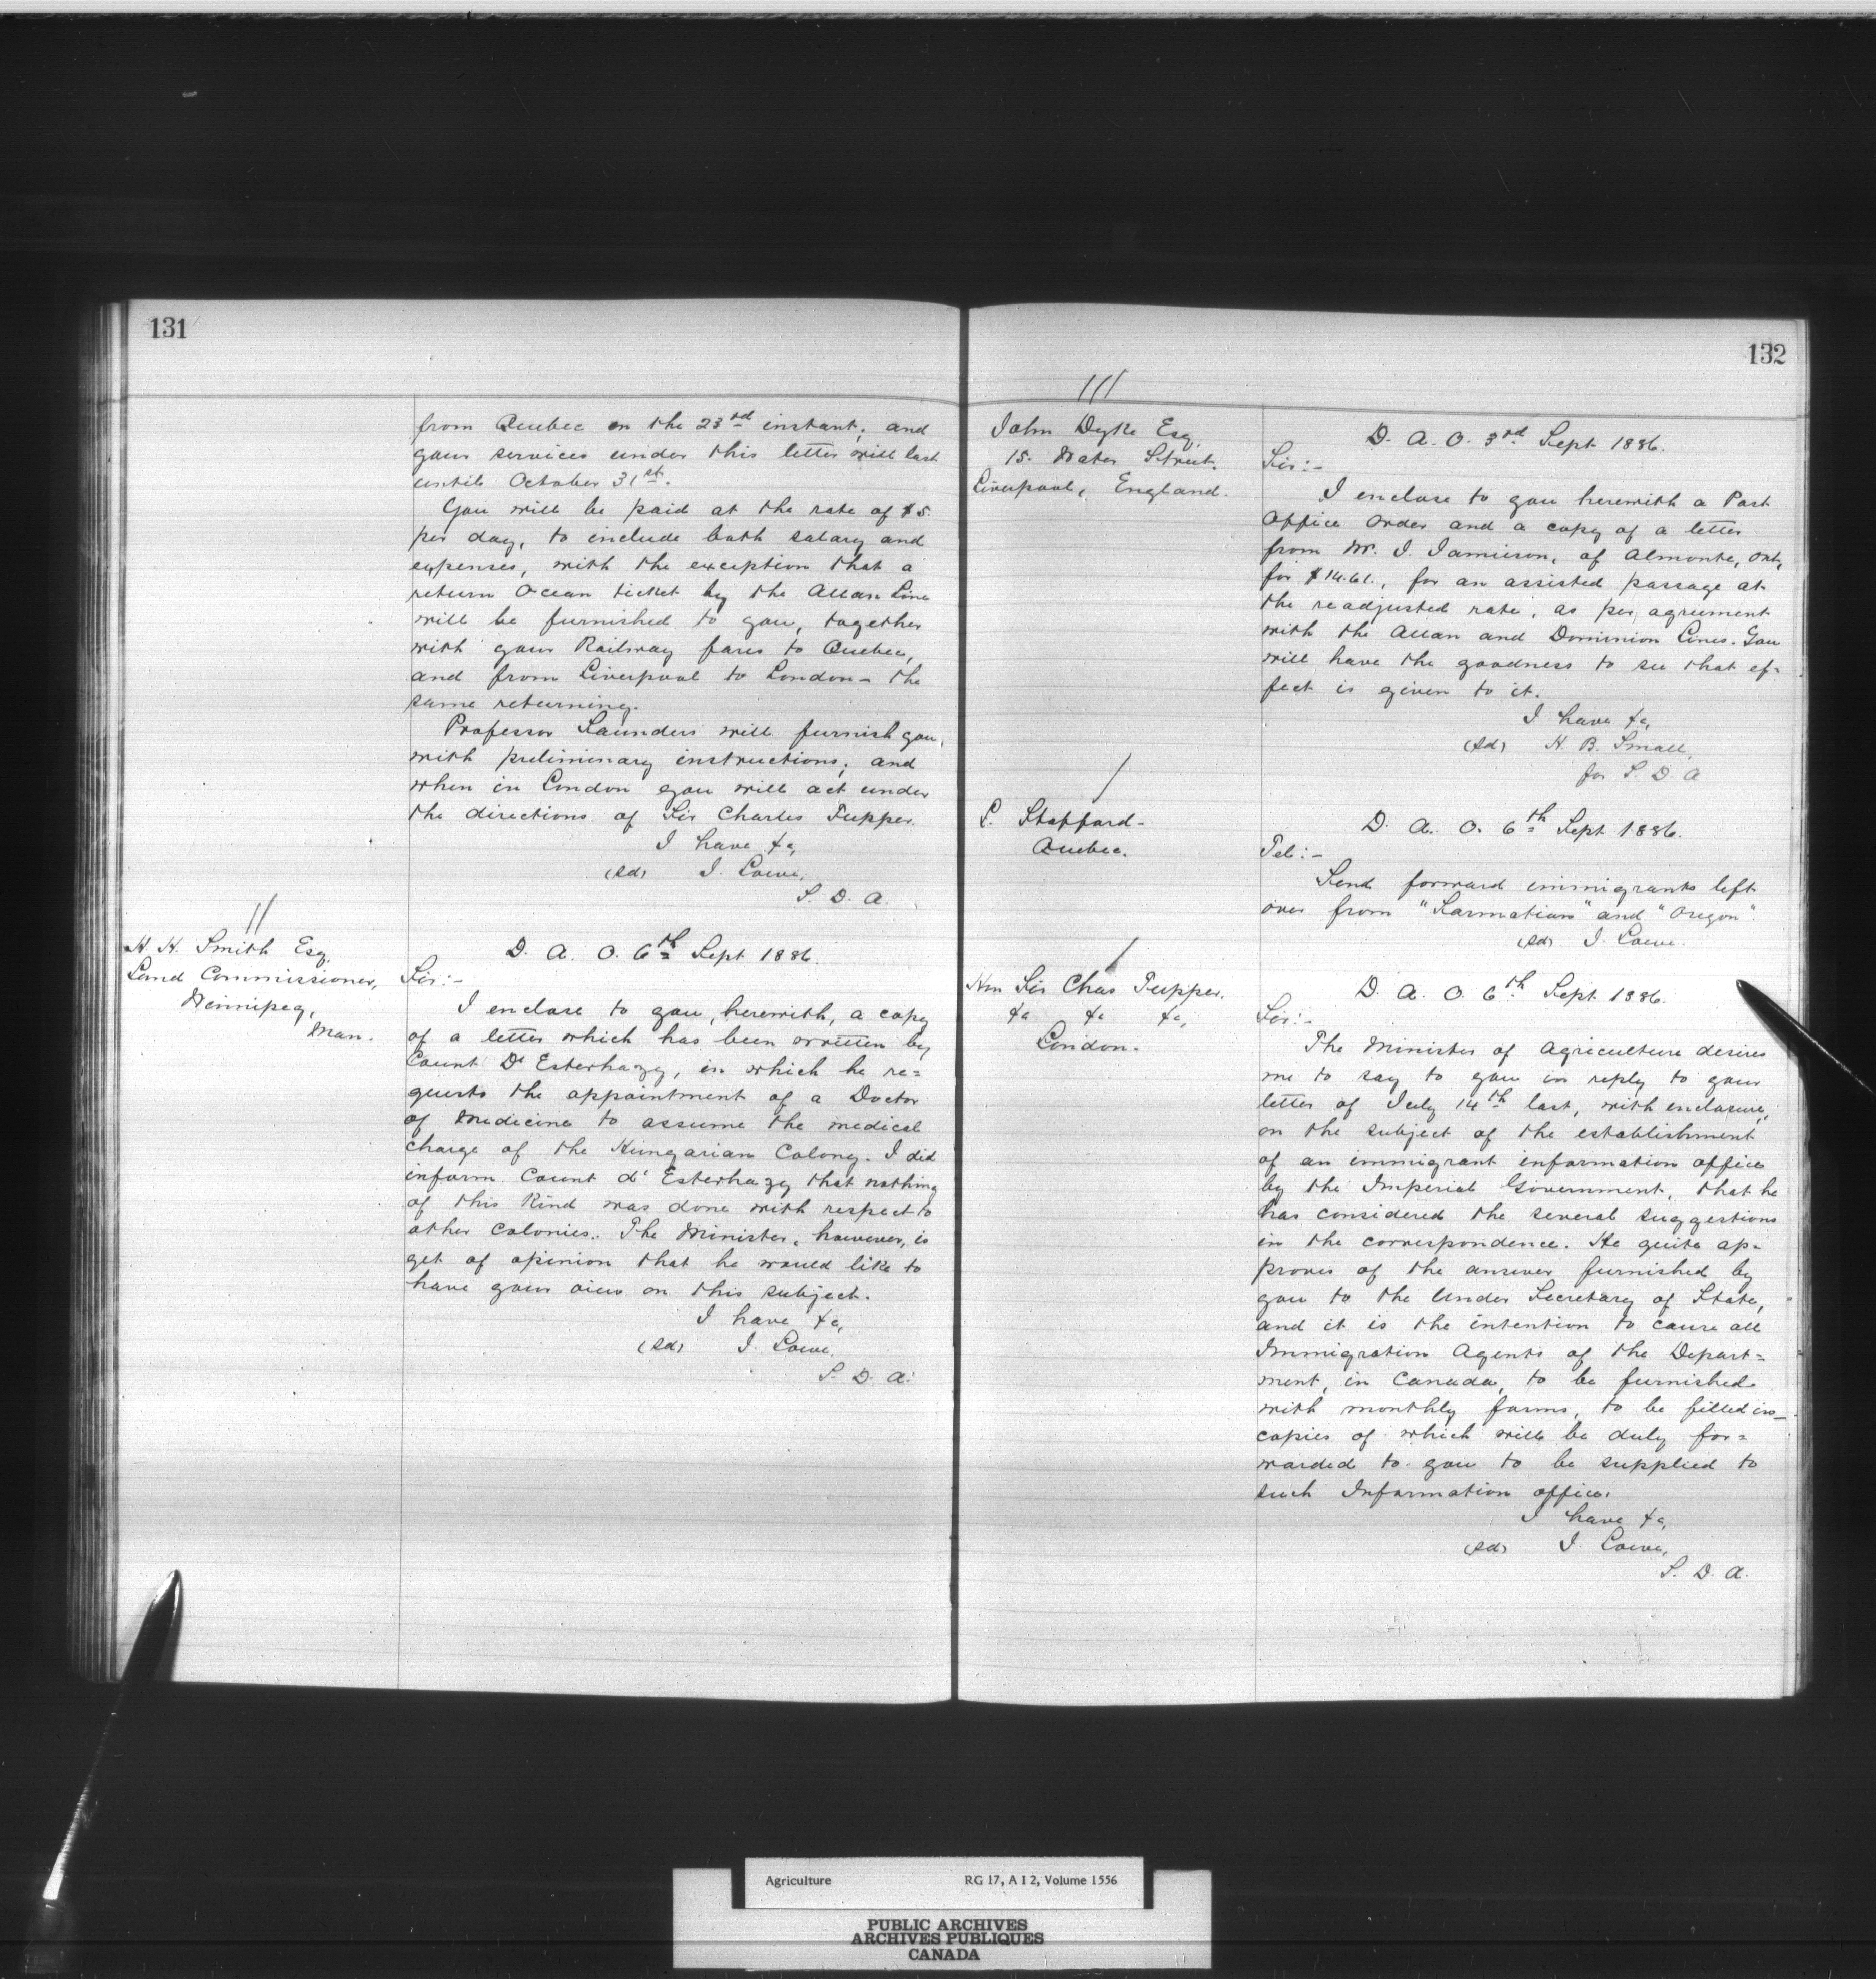 131
from Quebec on the 23rd instant; and
your services under this letter will last
until October 31st.
You will be paid at the rate of $5.
per day, to include both salary and
expenses, with the exception that a
return Ocean ticket by the Allan Line
will be furnished to you, together
with your Railway fares to Quebec,
and from Liverpool to London - the
same returning.
Professor Saunders will furnish you,
with preliminary instructions; and
when in London you will act under
the directions of Sir Charles Tupper.
I have &c,
(sd) J. Lowe,
S. D. A.
H. H. Smith Esq.
Land Commissioner,
Winnipeg,
Man.
D. A. O. 6th Sept 1886.
Sir:-
I enclose to you, herewith, a copy
of a letter which has been written by
Count D' Esterhazy, in which he re=
quests the appointment of a Doctor
of Medicine to assume the medical
charge of the Hungarian Colony. I did
inform Count d' Esterhazy that nothing
of this kind was done with respect to
other colonies. The Minister, however, is
yet of opinion that he would like to
have your view on this subject.
I have &c,
(sd) J. Lowe.
S. D. A.
132
John Dyke Esq.
15. Water Street.
Liverpool, England.
D. A. O. 3rd Sept 1886.
Sir:-
I enclose to you herewith a Post
Office Order and a copy of a letter
from Mr. J. Jamieson, of Almonte, Ont,
for $14.61., for an assisted passage at
the readjusted rate, as per agreement
with the Allan and Dominion Lines. You
will have the goodness to see that ef-
fect is given to it.
I have &c,
(sd) H. B. Small,
for S. D. A
L. Stafford-
Quebec.
D. A. O. 6th Sept 1886.
Tel:-
Send forward immigrants left
over from "Sarmatian" and "Oregon".
(sd) J. Lowe.
Hon Sir Chas Tupper.
&c &c &c,
London.
D. A. O. 6th Sept 1886.
Sir:-
The Minister of Agriculture desires
me to say to you in reply to your
letter of July 14th last, with enclosure,
on the subject of the establishment
of an immigrant information office
by the Imperial Government, that he
has considered the several suggestions
in the correspondence. He quite ap-
proves of the answer furnished by
you to the Under Secretary of State,
and it is the intention to cause all
Immigration Agents of the Depart=
ment, in Canada, to be furnished
with monthly forms, to be filled in_
copies of which will be duly for=
warded to you to be supplied to
such Information office.
I have &c,
(sd) J. Lowe,
S. D. A.
Agriculture RG 17, A I 2, Volume 1556
PUBLIC ARCHIVES
ARCHIVES PUBLIQUES
CANADA